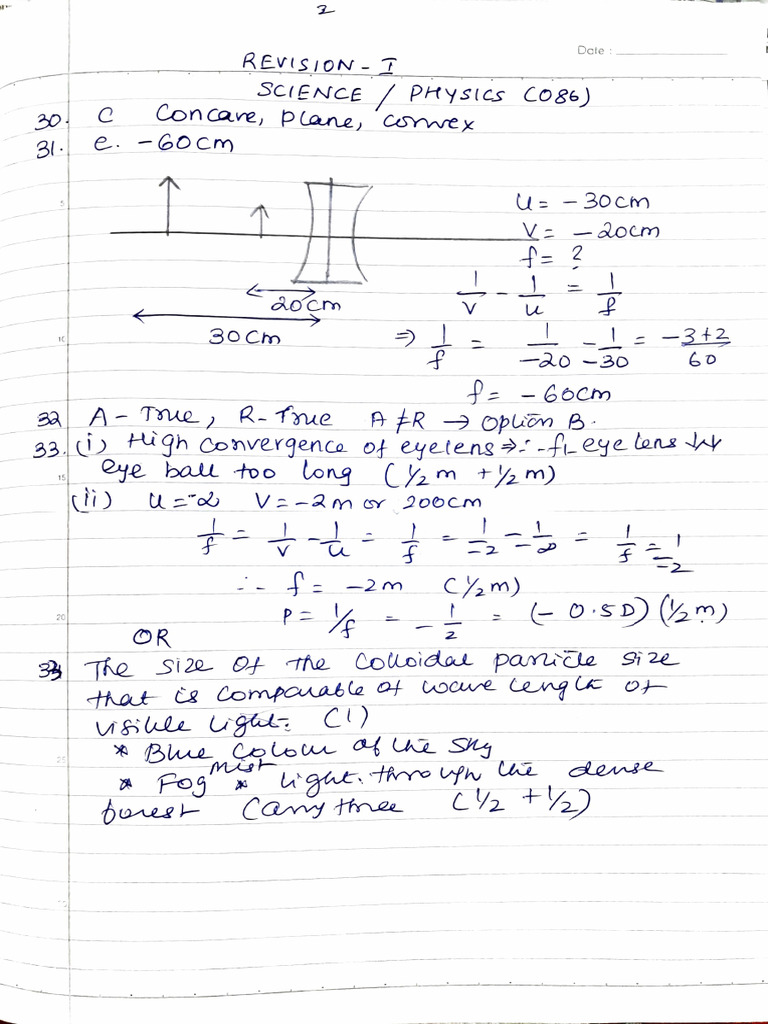 2
Date :
REVISION - I
SCIENCE / PHYSICS (086)
30. C Concave, plane, convex
31. e. -60cm
u = -30cm
V = -20cm
f = ?
1/v - 1/u = 1/f
20cm
30cm
⇒ 1/f = 1/-20 - 1/-30 = -3+2/60
f = -60cm
32 A - True, R - True A ≠ R → Option B.
33. (i) High convergence of eyelens ⇒ ∴ f eye lens ↓↓
eye ball too long (1/2 m + 1/2 m)
(ii) u = -∞ V = -2m or 200cm
1/f = 1/v - 1/u = 1/f = 1/-2 - 1/-∞ = 1/f = 1/-2
∴ f = -2m (1/2 m)
P = 1/f = -1/2 = (-0.5D) (1/2 m)
OR
33 The size of the colloidal particle size
that is comparable of wave length of
visible light. (1)
* Blue Colour of the sky
* Fog mist * light through the dense
forest (any three (1/2 + 1/2)
5
10
15
20
25